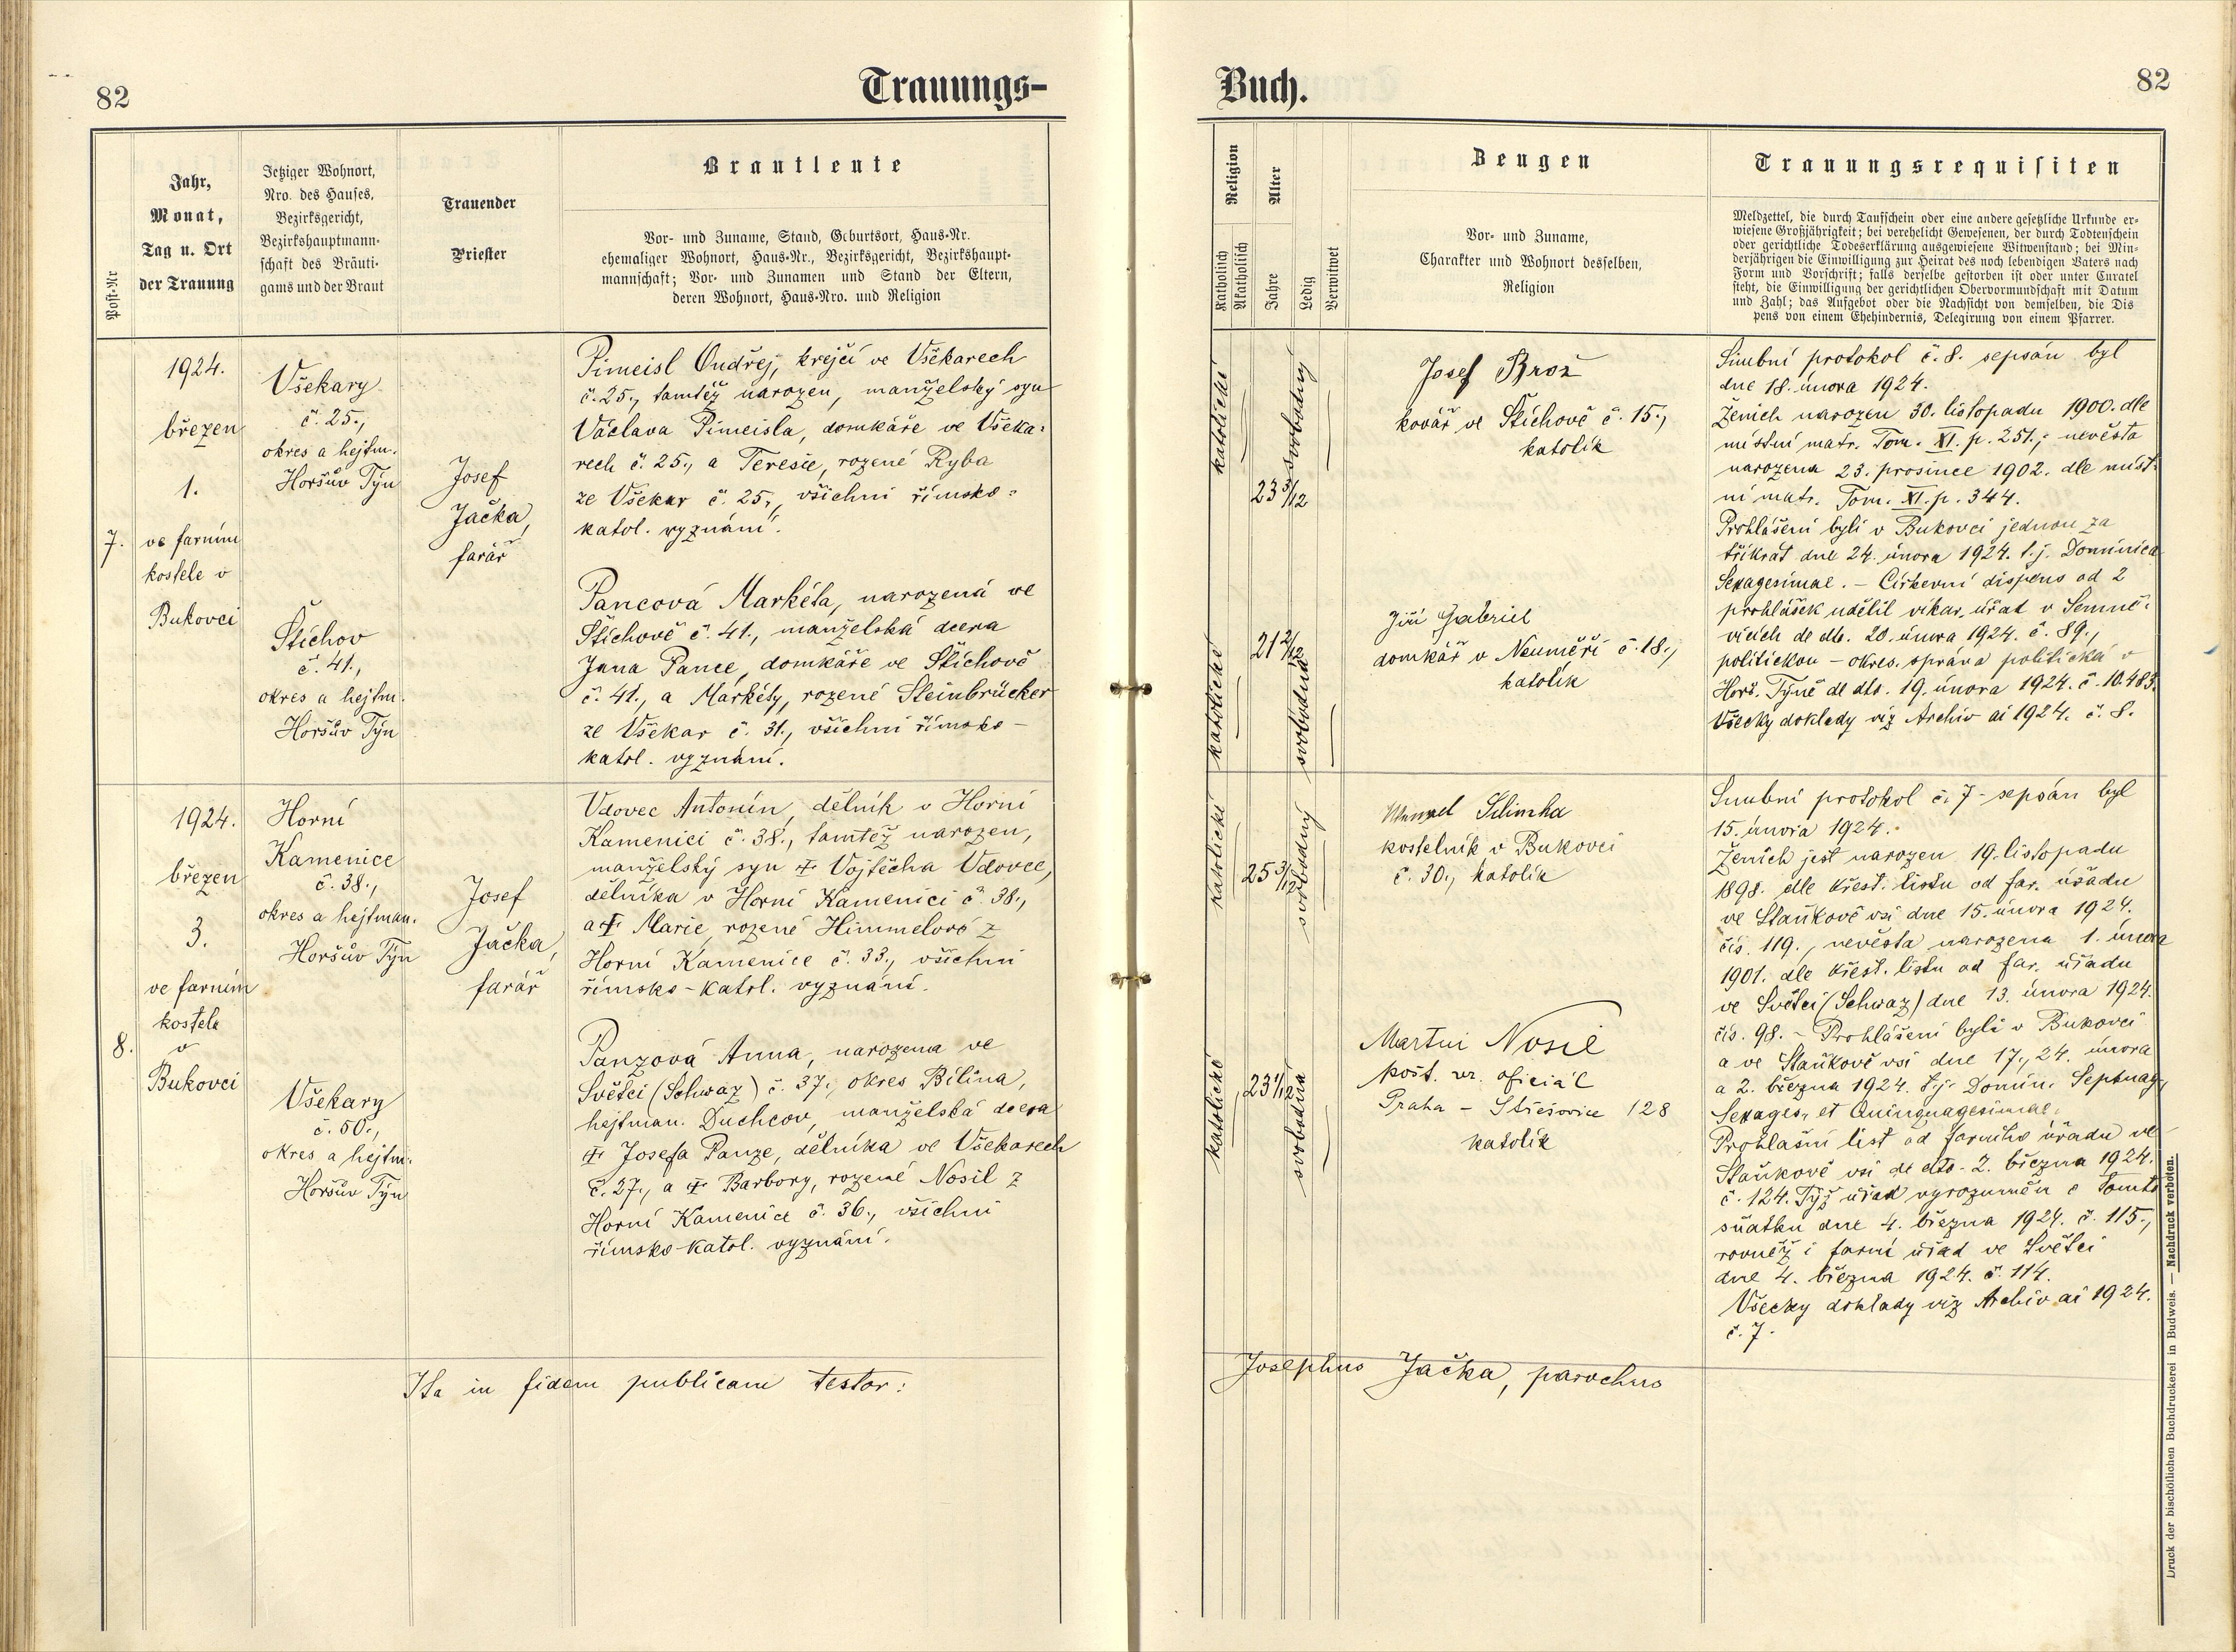 82
Trauungs-
Jahr,
Monat,
Tag u. Ort
der Trauung
Post-Nr
Jetziger Wohnort,
Nro. des Hauses,
Bezirksgericht,
Bezirkshauptmann-
schaft des Bräuti-
gams und der Braut
Trauender
Priester
Brautleute
Vor- und Zuname, Stand, Geburtsort, Haus-Nr.
ehemaliger Wohnort, Haus-Nr., Bezirksgericht, Bezirkshaupt-
mannschaft; Vor- und Zunamen und Stand der Eltern,
deren Wohnort, Haus-Nro. und Religion
7.
1924.
březen
1.
ve farním
kostele v
Bukovci
Všekary
č. 25.,
okres a hejtm.
Horšův Týn
Štichov
č. 41.,
okres a hejtm.
Horšův Týn
Josef
Jačka,
farář
Pimeisl Ondřej, krejčí ve Všekarech
č. 25., tamtéž narozen, manželský syn
Václava Pimeisla, domkáře ve Všeka-
rech č. 25., a Teresie, rozené Ryba
ze Všekar č. 25., všichni římsko-
katol. vyznání.
Pancová Markéta, narozená ve
Štichově č. 41., manželská dcera
Jana Pance, domkáře ve Štichově
č. 41., a Markéty, rozené Steinbrücker
ze Všekar č. 31., všichni římsko-
katol. vyznání.
8.
1924.
březen
3.
ve farním
kostele
v
Bukovci
Horní
Kamenice
č. 38.,
okres a hejtman.
Horšův Týn
Všekary
č. 50.,
okres a hejtm.
Horšův Týn
Josef
Jačka,
farář
Vdovec Antonín, dělník v Horní
Kamenici č. 38., tamtéž narozen,
manželský syn † Vojtěcha Vdovce,
dělníka v Horní Kamenici č. 38.,
a † Marie, rozené Himmelové z
Horní Kamenice č. 33., všichni
římsko-katol. vyznání.
Panzová Anna, narozena ve
Světci (Schwaz) č. 37., okres Bílina,
hejtman. Duchcov, manželská dcera
† Josefa Panze, dělníka ve Všekarech
č. 27., a † Barbory, rozené Nosil z
Horní Kamenice č. 36., všichni
římsko-katol. vyznání.
Ita in fidem publicam testor:
Buch.
82
Religion
Katholisch
Akatholisch
Alter
Jahre
Ledig
Verwitwet
Zeugen
Vor- und Zuname,
Charakter und Wohnort desselben,
Religion
Trauungsrequisiten
Meldzettel, die durch Taufschein oder eine andere gesetzliche Urkunde er-
wiesene Großjährigkeit; bei verehelicht Gewesenen, der durch Todtenschein
oder gerichtliche Todeserklärung ausgewiesene Witwenstand; bei Min-
derjährigen die Einwilligung zur Heirat des noch lebendigen Vaters nach
Form und Vorschrift; falls derselbe gestorben ist oder unter Curatel
steht, die Einwilligung der gerichtlichen Obervormundschaft mit Datum
und Zahl; das Aufgebot oder die Nachsicht von demselben, die Dis
pens von einem Ehehindernis, Delegirung von einem Pfarrer.
katolické
23 3/12
svobodný
katolické
21 2/12
svobodná
Josef Brož
kovář ve Štichově č. 15.,
katolík
Jiří Gabriel
domkář v Neuměři č. 18.,
katolík
Snubní protokol č. 8. sepsán byl
dne 18. února 1924.
Ženich narozen 30. listopadu 1900. dle
místní matr. Tom. XI. p. 251.; nevěsta
narozena 23. prosince 1902. dle míst-
ní matr. Tom. XI. p. 344.
Prohlášeni byli v Bukovci jednou za
třikrát dne 24. února 1924. t. j. Dominica
Sexagesimae. – Církevní dispens od 2
prohlášek udělil vikar. úřad v Semně-
vicích de dto. 20. února 1924. č. 89.,
politickou – okres. správa politická v
Horš. Týně de dto. 19. února 1924. č. 10.483.
Všecky doklady viz Archiv ai 1924. č. 8.
katolické
25 3/12
svobodný
katolické
23 1/12
svobodná
kostelník v Bukovci
č. 30., katolík
Martin Nosil
pošt. vr. oficiál
Praha – Střešovice 128
katolík
Snubní protokol č. 7 – sepsán byl
15. února 1924.
Ženich jest narozen 19. listopadu
1898. dle křest. listu od far. úřadu
ve Staňkově vsi dne 15. února 1924.
čís. 119., nevěsta narozena 1. února
1901. dle křest. listu od far. úřadu
ve Světci (Schwaz) dne 13. února 1924.
čís. 98. – Prohlášeni byli v Bukovci
a ve Staňkově vsi dne 17., 24. února
a 2. března 1924. t. j. Domin. Septuag.,
Sexages., et Quinquagesimae.
Prohlašní list od farního úřadu ve
Staňkově vsi de dto. 2. března 1924.
č. 124. Týž úřad vyrozuměn o tomto
sňatku dne 4. března 1924. č. 115.,
rovněž i farní úřad ve Světci
dne 4. března 1924. č. 114.
Všecky doklady viz Archiv ai 1924.
č. 7.
Josephus Jačka, parochus
Druck der bischöflichen Buchdruckerei in Budweis. — Nachdruck verboten.